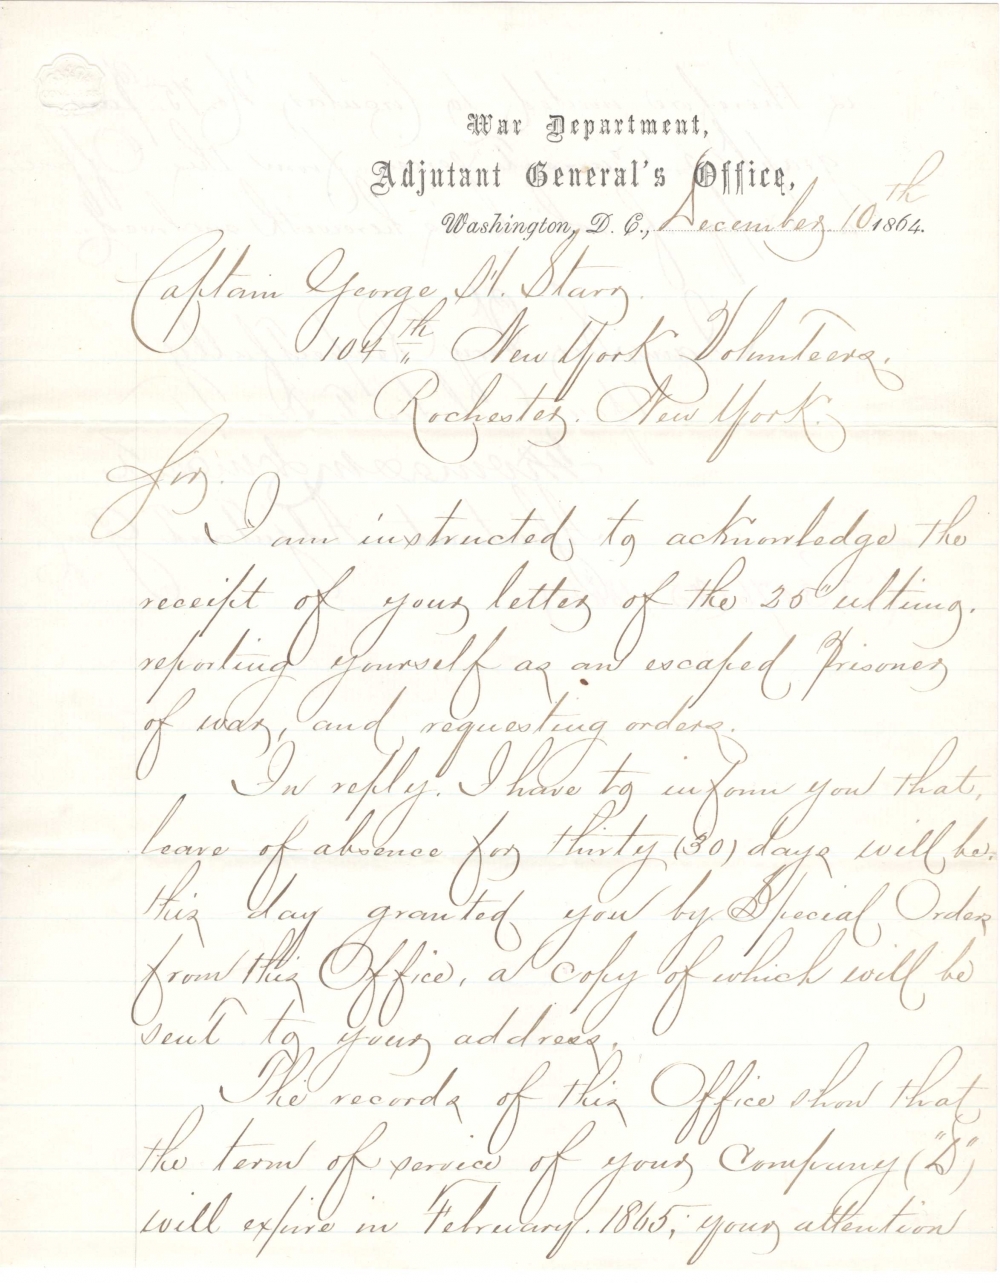 War Department,
Adjutant General's Office,
Washington, D. C., December 10th 1864.
Captain George H. Starr.
104th New York Volunteers.
Rochester. New York.
Sir.
I am instructed to acknowledge the
receipt of your letter of the 25" ultimo.
reporting yourself as an escaped Prisoner
of war, and requesting orders.
In reply. I have to inform you that,
leave of absence for thirty (30) days will be.
this day granted you by Special Orders
from this Office, a copy of which will be
sent to your address.
The records of this Office show that
the term of service of your Company ("D")
will expire in February. 1865; your attention